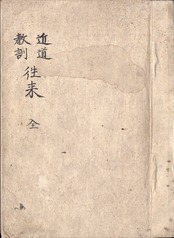 近道
教訓
徃来
全